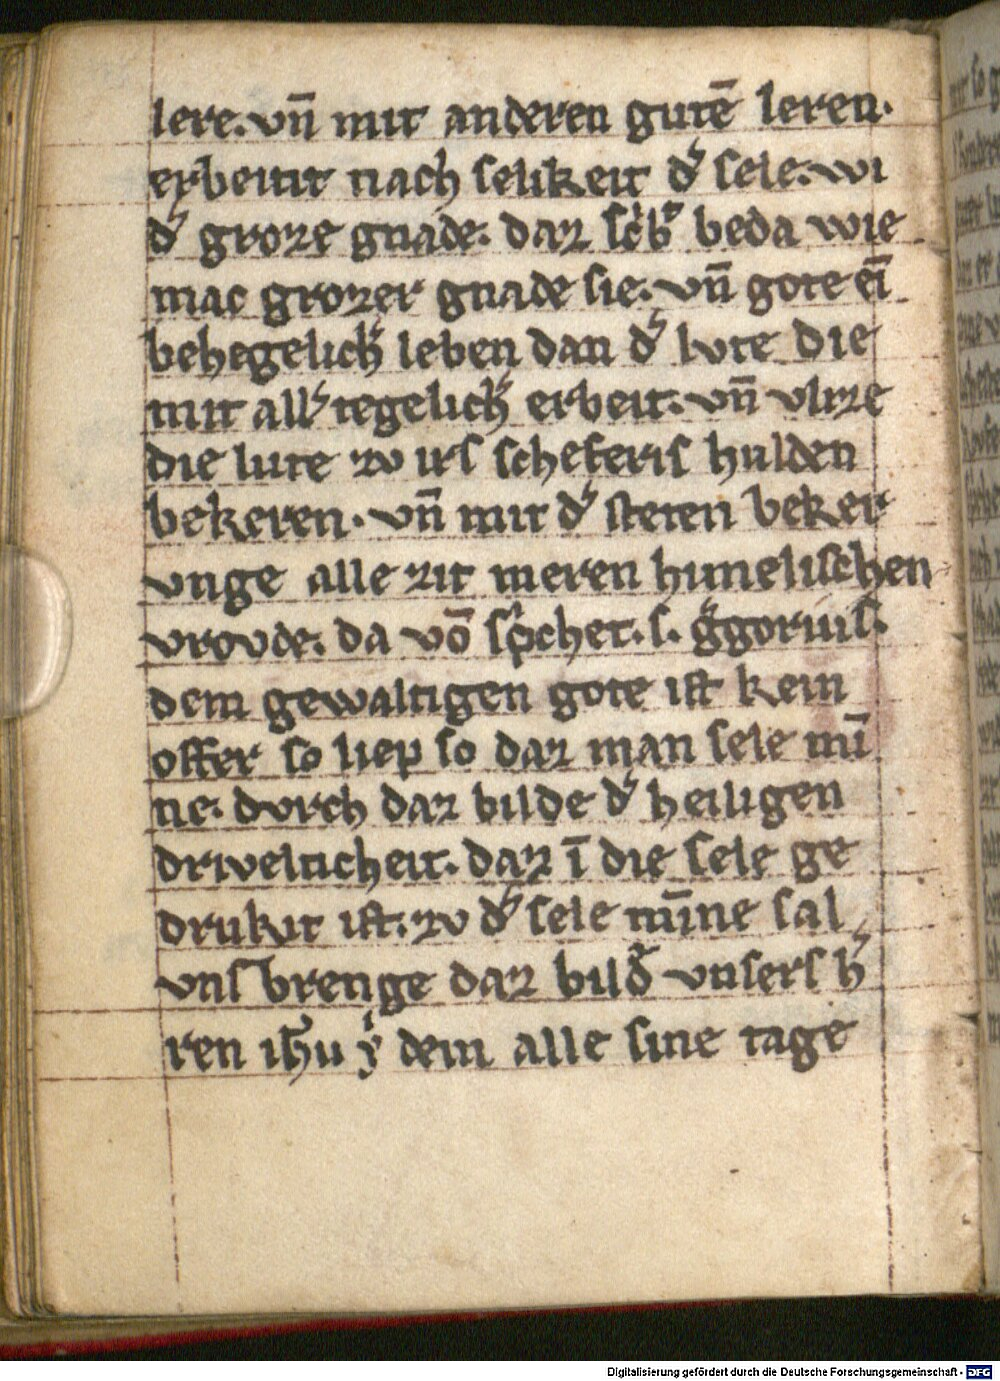 lere. vn̄ mit anderen gutē leren.
erbeitit nach selikeit d᷎ sele. wi
d᷎ groze gnade. daz beda wie
mac grozer gnade sie. vn̄ gote eī
behegelich᷎ leben dan d᷎ lvte die
mit all᷎ tegelich᷎ erbeit. vn̄ vlize
die lute zv irs scheferis hulden
bekeren. vn̄ mit d᷎ steten beker
vnge alle zit meren himelischen
vrovde. da vō sp̓chet. s. g̓gorius.
dem gewaltigen gote ist kein
offer so liep so daz man sele mī
ne. dvrch daz bilde d᷎ heiligen
driveltcheit. daz ī die sele ge
drukit ist. zv d᷎ sele mīne sal
vns brenge daz bild᷎ vnsers h᷎
ren ih̄u dem alle sine tage
Digitalisierung gefördert durch die Deutsche Forschungsgemeinschaft - DFG